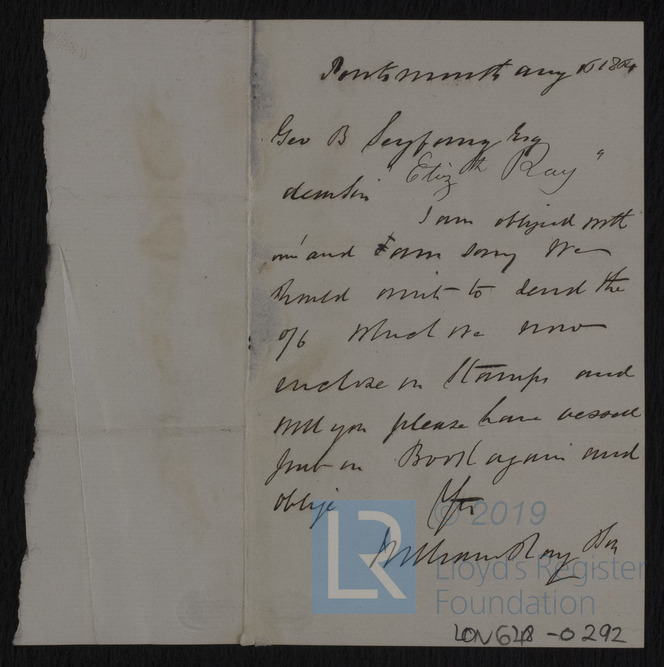 Portsmouth Aug 1864
Geo B Seyfang Esq
"Elizth Ray"
dear Sir
I am obliged with
and I am sorry we
should omit to send the
o/6 which we now
enclose in Stamps and
will you please have vessel
put in Book again and
oblige Yrs
William Ray Son
© 2019
LR
Lloyd's Register
Foundation
LON648-0292